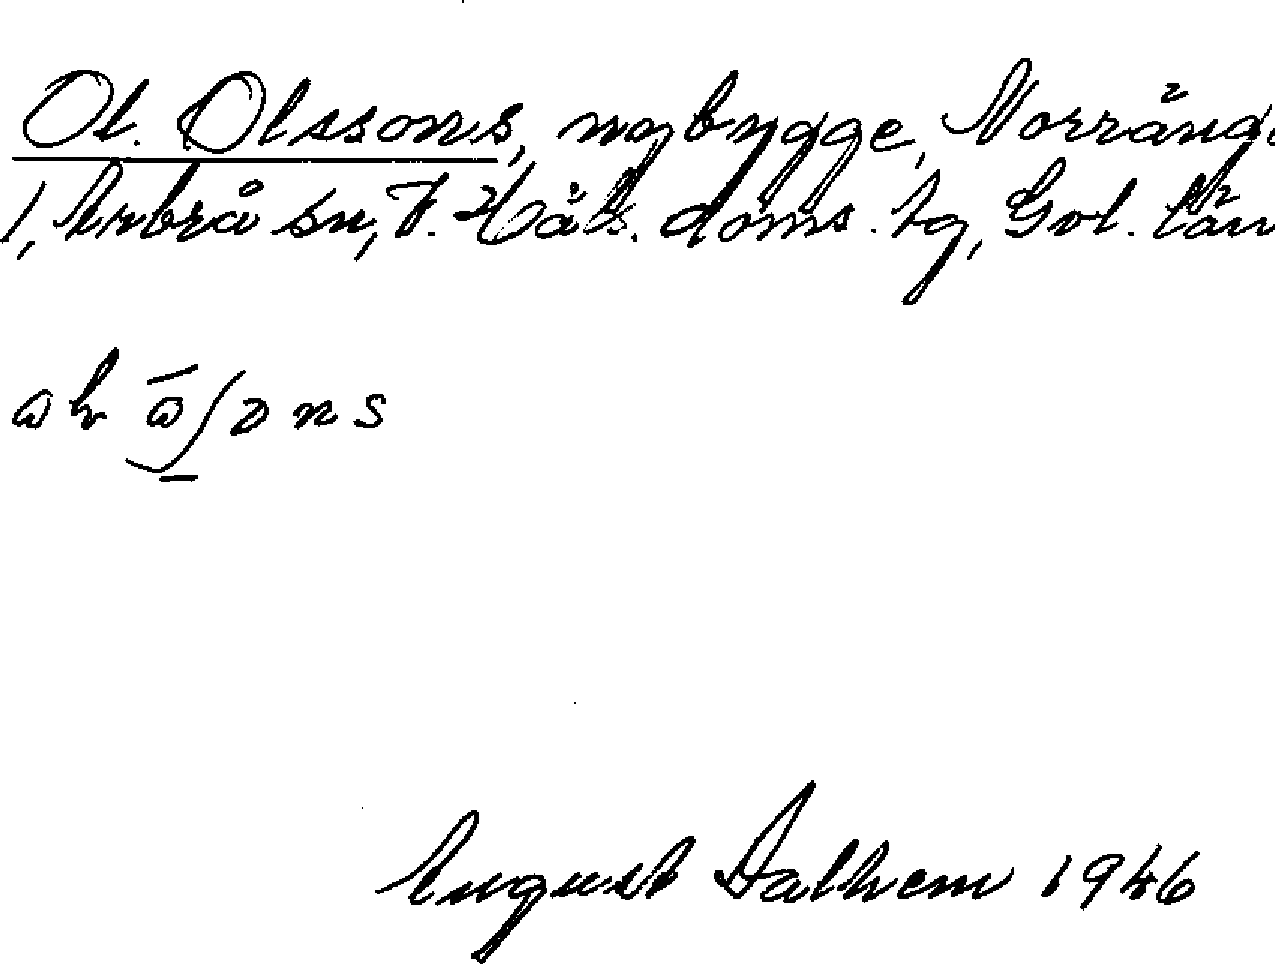 Ol. Olssons, nybygge, Norränge
1, Arbrå sn, V. Häls. doms. tg, Gvl. län
August Dalhem 1946